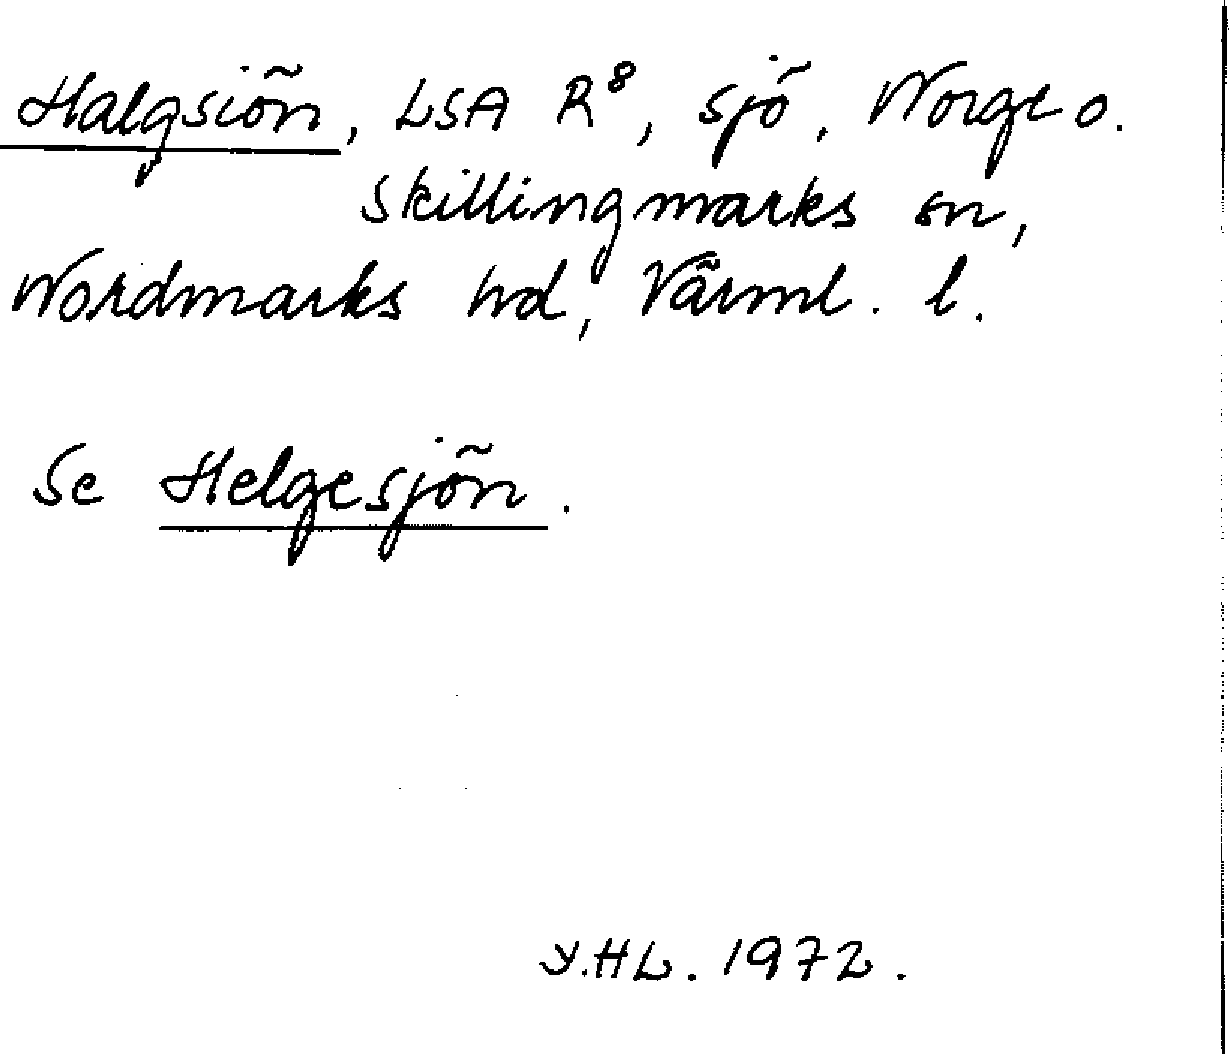 Halgsiön, LSA R⁸, sjö, Norge o.
Skillingmarks sn,
Nordmarks hd, Värml. l.
Se Helgesjön.
Y.HL. 1972.